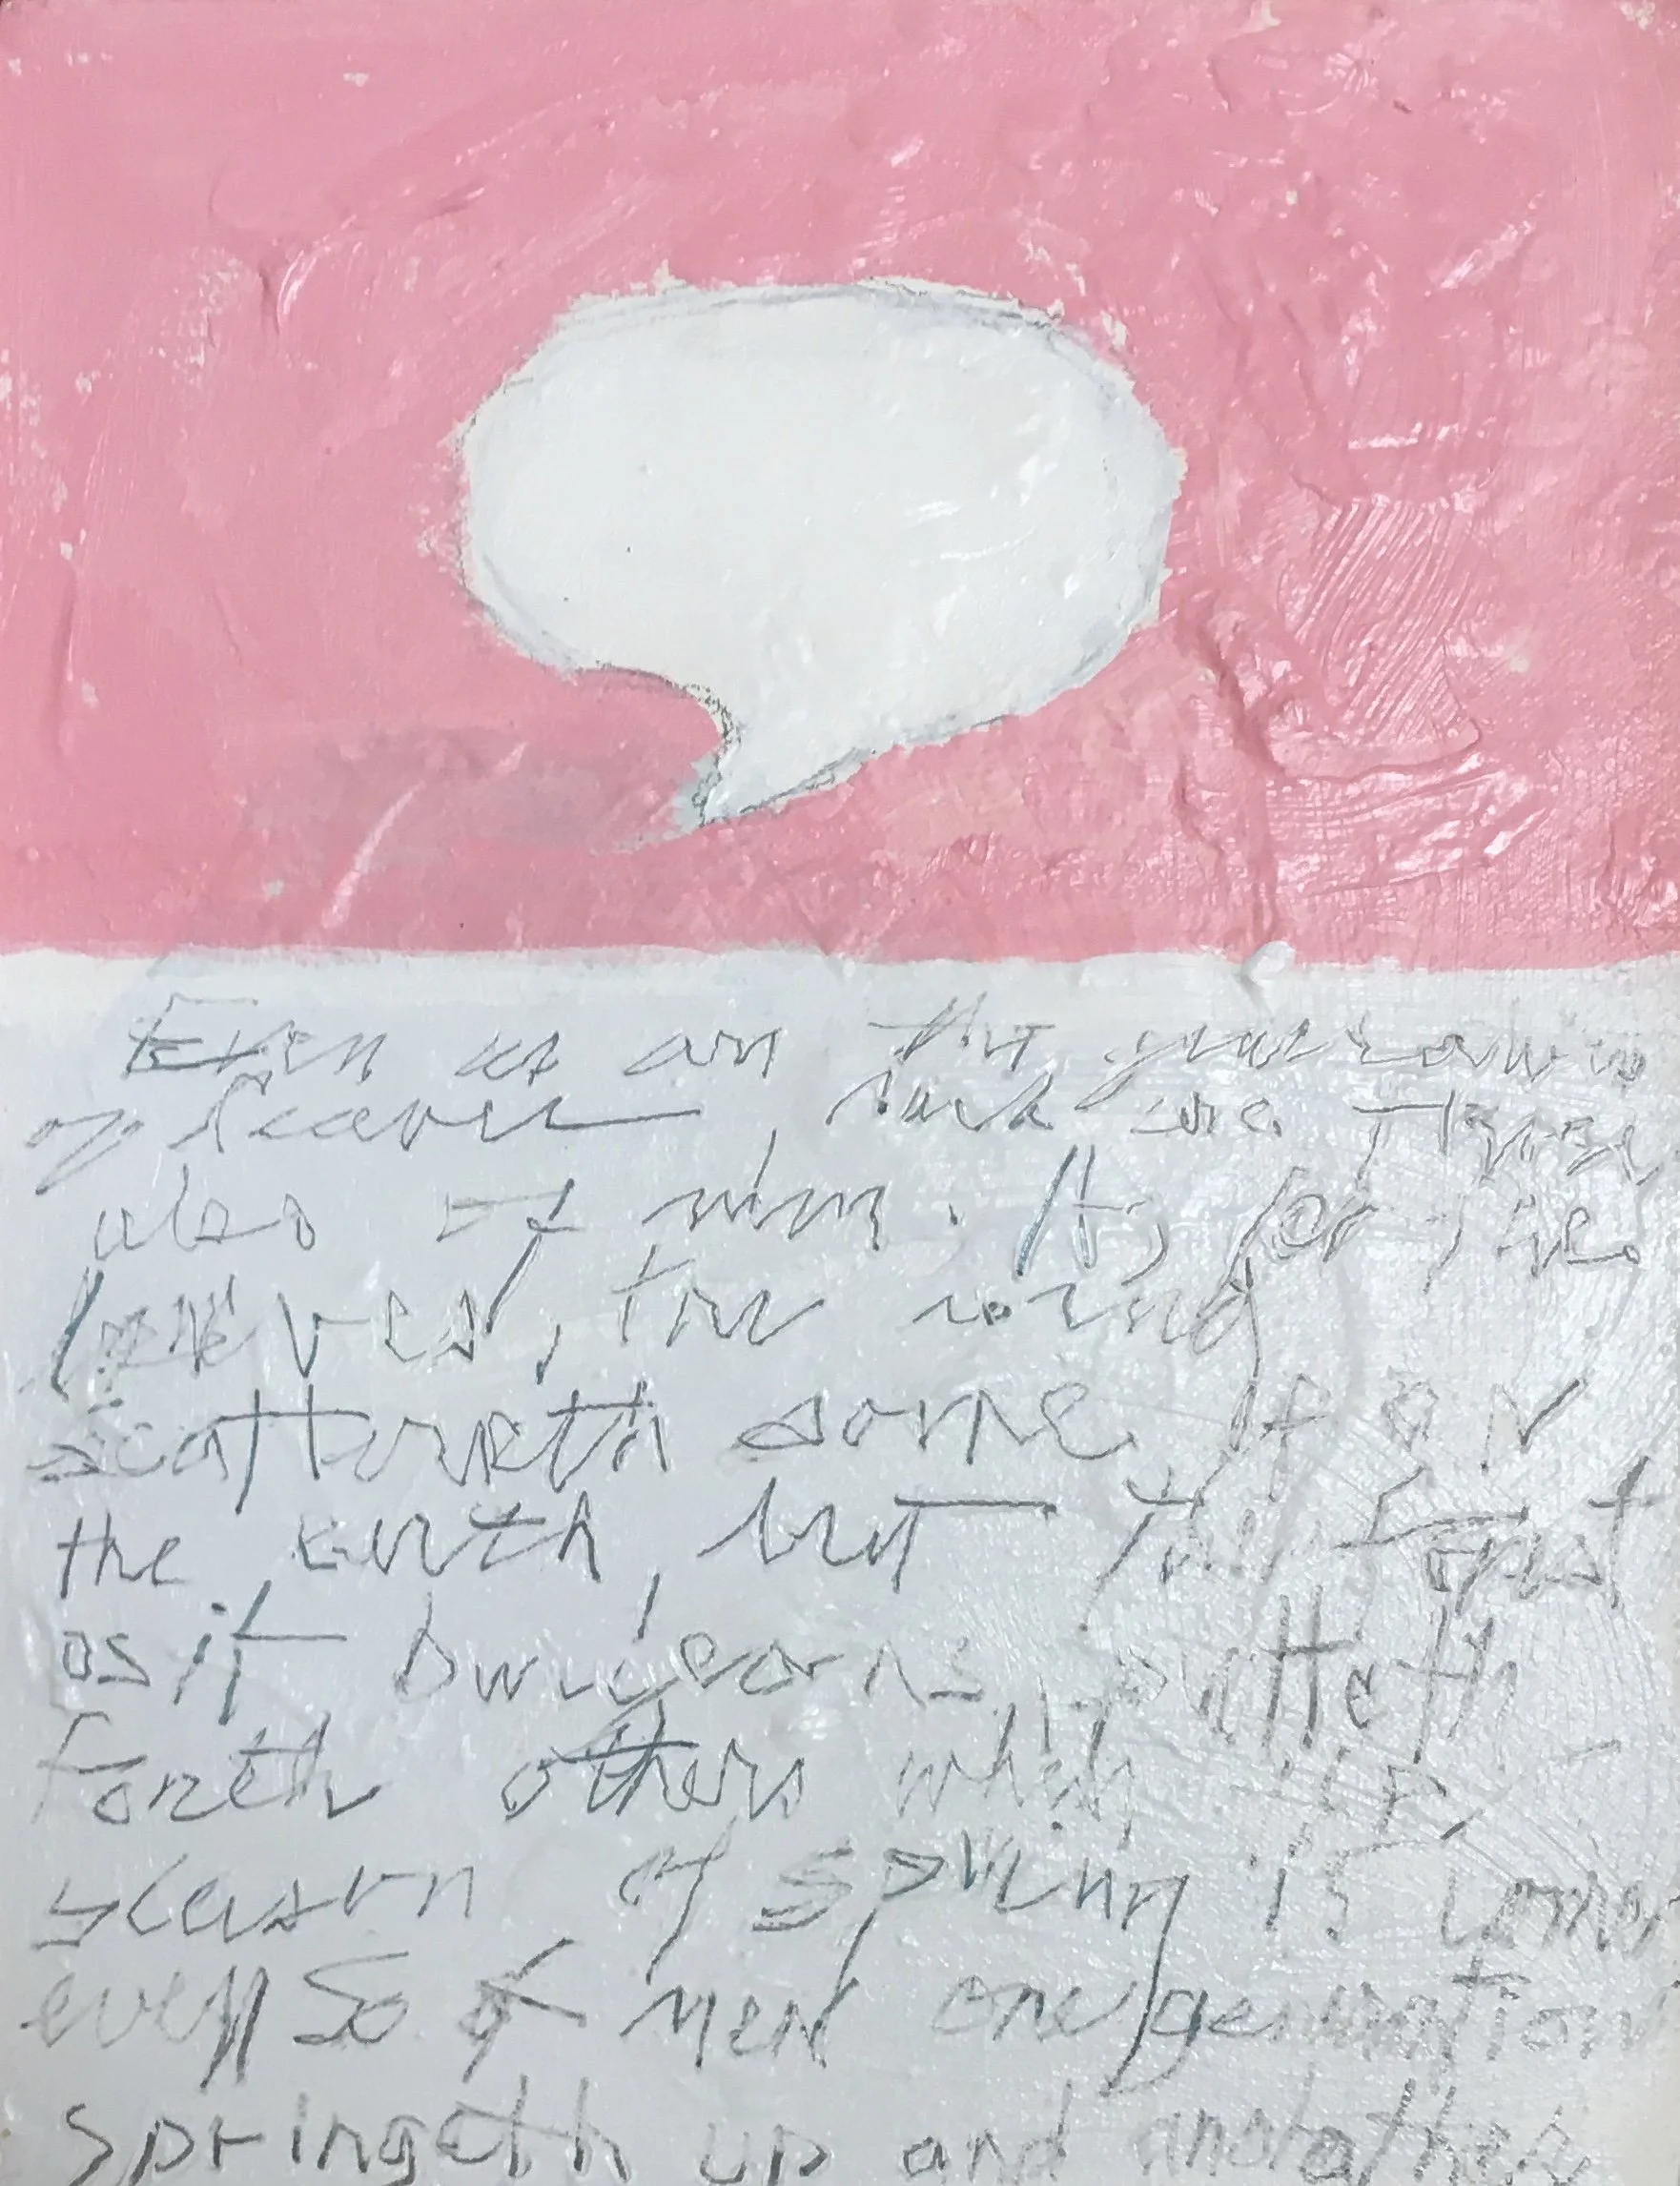 Even as are the generations
of leaves, such are those
also of men. As for the
leaves, the wind
scattereth some upon
the earth, but the forest
as it burgeons, putteth
forth others when the
season of spring is come
even so of men one generation
springeth up and another